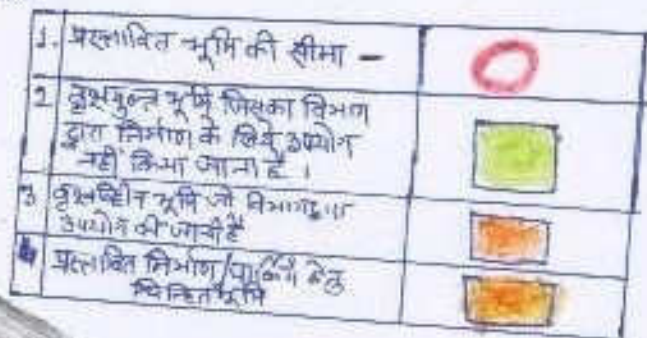 1. प्रस्तावित भूमि की सीमा -
2 वृक्षयुक्त भूमि जिसका विभाग
द्वारा निर्माण के लिये उपयोग
नहीं किया जाना है ।
3 वृक्षविहीन भूमि जो विभाग द्वारा
उपयोग की जानी है
4 प्रस्तावित निर्माण/पार्किंग हेतु
चिन्हित भूमि